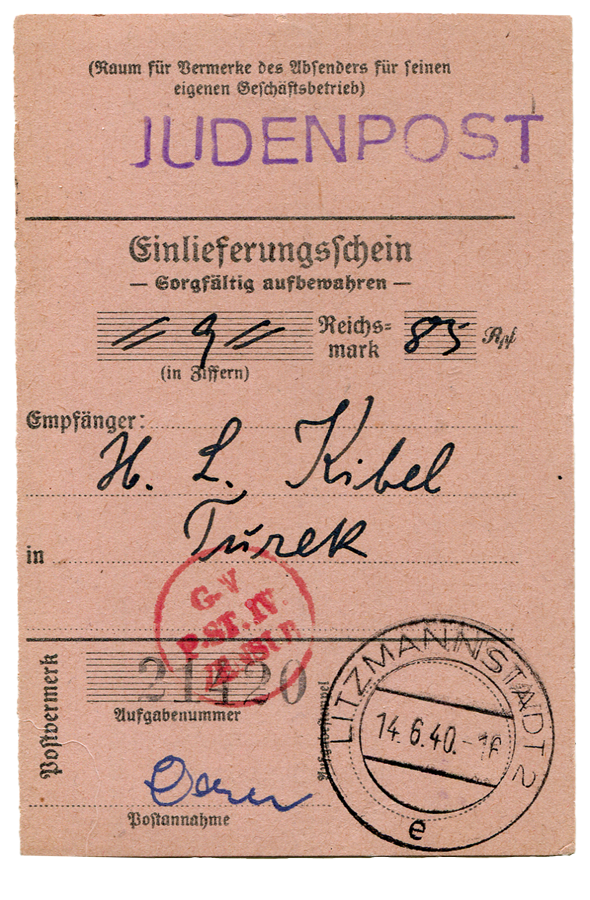 (Raum für Vermerke des Absenders für seinen
eigenen Geschäftsbetrieb)
JUDENPOST
Einlieferungsschein
— Sorgfältig aufbewahren —
9 Reichs=
mark 85 Rpf
(in Ziffern)
Empfänger:
H. L. Kibel
in Turek
G.V
P.ST.IV.
21420
Aufgabenummer
Postvermerk
LITZMANNSTADT 2
14.6.40.-
e
Postannahme